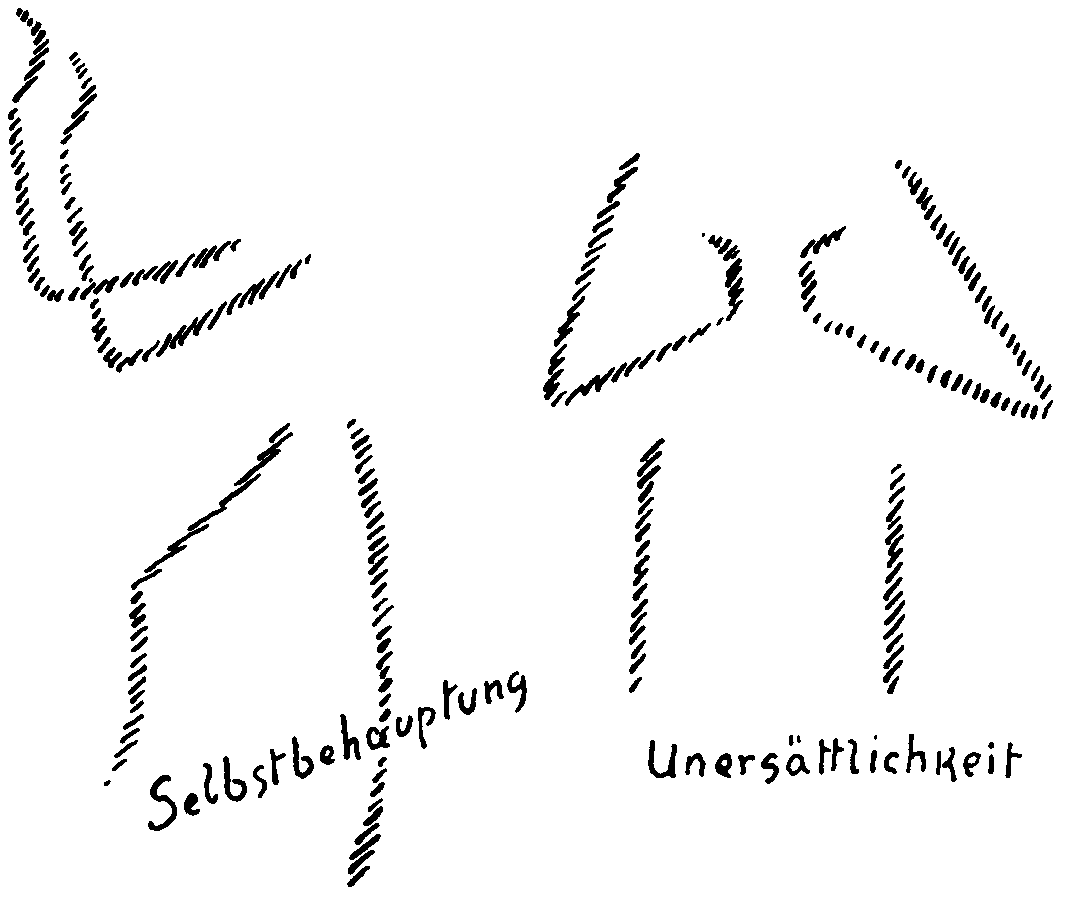 Selbstbehauptung
Unersättlichkeit